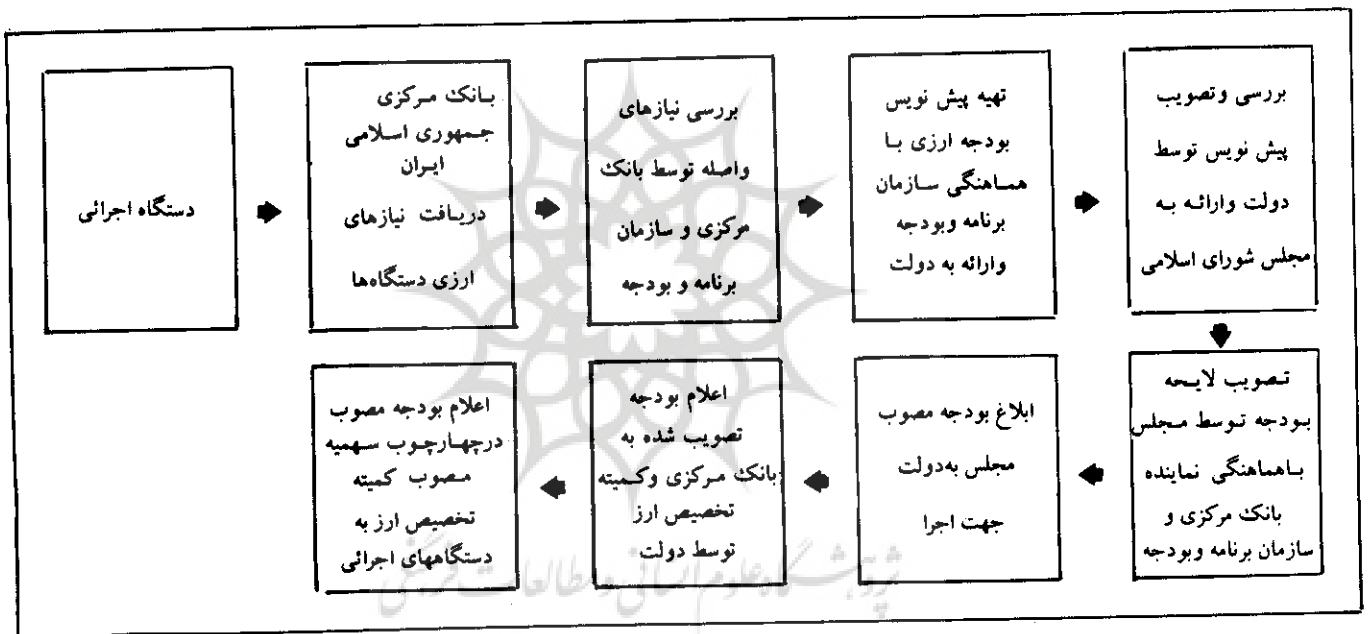 دستگاه اجرائی
بانک مرکزی
جمهوری اسلامی
ایران
دریافت نیازهای
ارزی دستگاه‌ها
بررسی نیازهای
واصله توسط بانک
مرکزی و سازمان
برنامه و بودجه
تهیه پیش نویس
بودجه ارزی با
هماهنگی سازمان
برنامه وبودجه
وارائه به دولت
بررسی وتصویب
پیش نویس توسط
دولت وارائه به
مجلس شورای اسلامی
تصویب لایحه
بودجه توسط مجلس
باهماهنگی نماینده
بانک مرکزی و
سازمان برنامه وبودجه
ابلاغ بودجه مصوب
مجلس به‌دولت
جهت اجرا
اعلام بودجه
تصویب شده به
بانک مرکزی وکمیته
تخصیص ارز
توسط دولت
اعلام بودجه مصوب
درچهارچوب سهمیه
مصوب کمیته
تخصیص ارز به
دستگاههای اجرائی
پژوهشگاه علوم انسانی و مطالعات فرهنگی